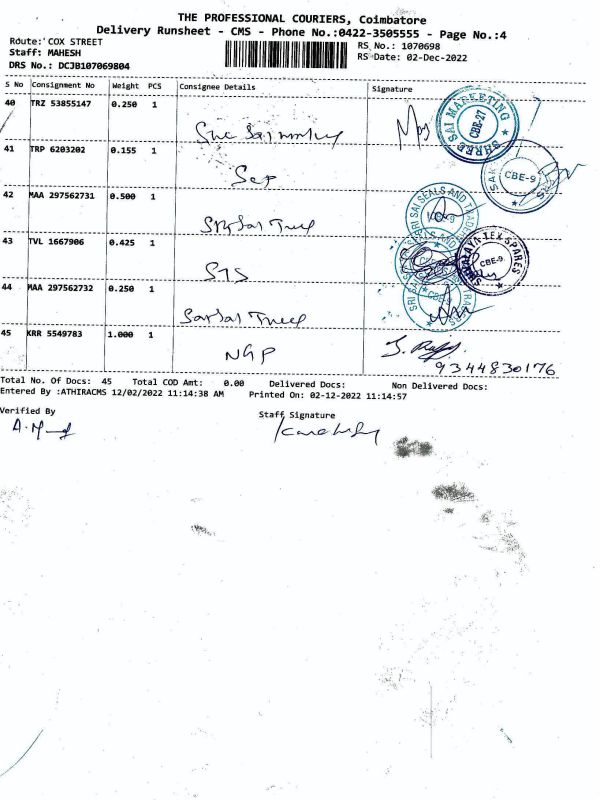 THE PROFESSIONAL COURIERS, Coimbatore
Delivery Runsheet - CMS - Phone No.:0422-3505555 - Page No.:4
Route: COX STREET
Staff: MAHESH
DRS No.: DCJB107069804
RS No.: 1070698
RS Date: 02-Dec-2022
S No Consignment No Weight PCS Consignee Details Signature
40 TRZ 53855147 0.250 1
SHREE SAI MARKETING CBE-27
41 TRP 6203202 0.155 1
CBE-9
42 MAA 297562731 0.500 1
43 TVL 1667906 0.425 1
STS
CBE-9
44 MAA 297562732 0.250 1
45 KRR 5549783 1.000 1
NGP
9344830176
Total No. Of Docs: 45 Total COD Amt: 0.00 Delivered Docs: Non Delivered Docs:
Entered By :ATHIRACMS 12/02/2022 11:14:38 AM Printed On: 02-12-2022 11:14:57
Verified By
Staff Signature